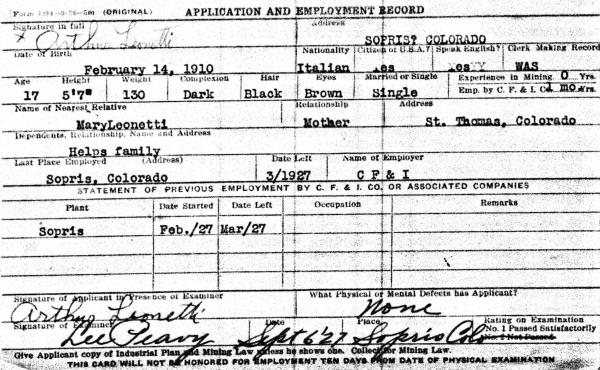 Form 1294-9-26-5m (ORIGINAL) APPLICATION AND EMPLOYMENT RECORD
Signature in full Address
x Arthur Leonetti SOPRIS? COLORADO
Date of Birth Nationality Citizen of U.S.A.? Speak English? Clerk Making Record
February 14, 1910 Italian yes yes WAS
Age Height Weight Complexion Hair Eyes Married or Single Experience in Mining 0 Yrs.
17 5'7" 130 Dark Black Brown Single Emp. by C. F. & I. C. 1 mo. Yrs.
Name of Nearest Relative Relationship Address
MaryLeonetti Mother St. Thomas, Colorado
Dependents, Relationship, Name and Address
Helps family
Last Place Employed (Address) Date Left Name of Employer
Sopris, Colorado 3/1927 C F & I
STATEMENT OF PREVIOUS EMPLOYMENT BY C. F. & I. CO. OR ASSOCIATED COMPANIES
Plant Date Started Date Left Occupation Remarks
Sopris Feb./27 Mar/27
Signature of Applicant in Presence of Examiner What Physical or Mental Defects has Applicant?
Arthur Leonetti None
Signature of Examiner Date Place Rating on Examination
Lee Peavy Sept 6 '27 Sopris Colo No. 1 Passed Satisfactorily
No. 2 Not Passed
Give Applicant copy of Industrial Plan and Mining Law unless he shows one. Collect for Mining Law.
THIS CARD WILL NOT BE HONORED FOR EMPLOYMENT TEN DAYS FROM DATE OF PHYSICAL EXAMINATION